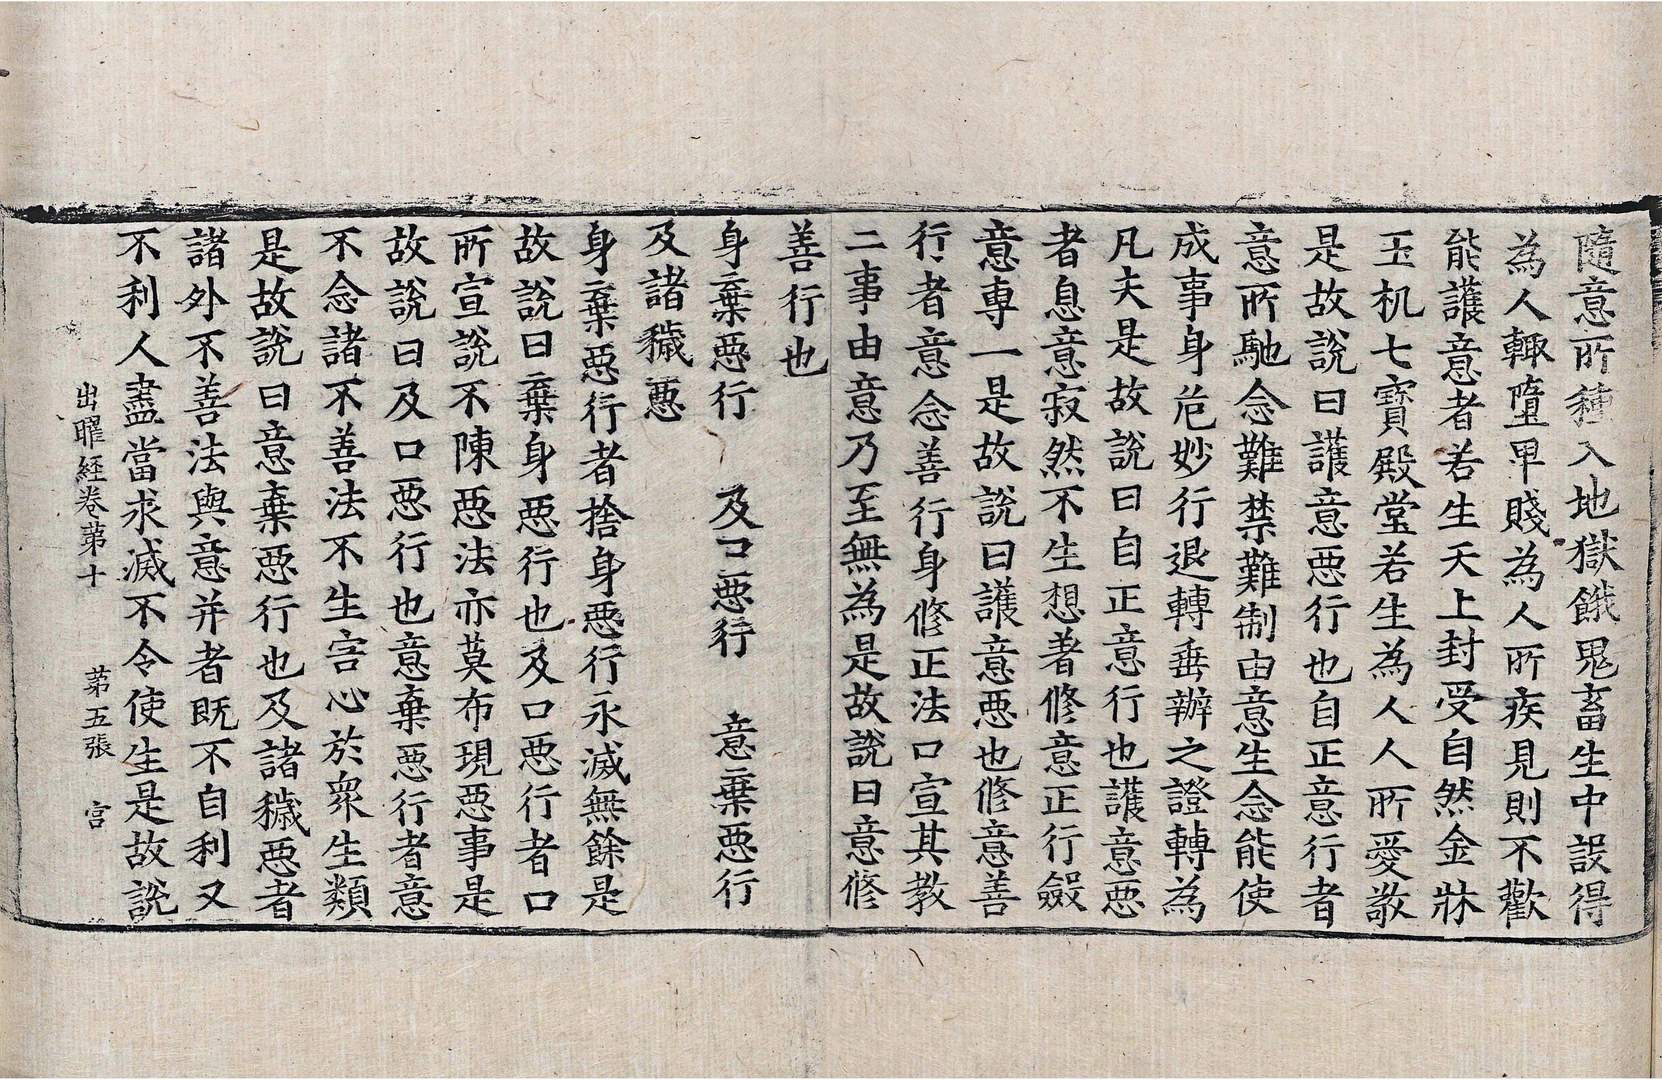 隨意所種入地獄餓鬼畜生中設得
為人輙墮卑賤為人所疾見則不歡
能護意者若生天上封受自然金牀
玉机七寶殿堂若生為人人所愛敬
是故說曰護意惡行也自正意行者
意所馳念難禁難制由意生念能使
成事身危妙行退轉垂辦之證轉為
凡夫是故說曰自正意行也護意惡
者息意寂然不生想著修意正行斂
意專一是故說曰護意惡也修意善
行者意念善行身修正法口宣其教
二事由意乃至無為是故說曰意修
善行也
身棄惡行　及口惡行　意棄惡行
及諸穢惡
身棄惡行者捨身惡行永滅無餘是
故說曰棄身惡行也及口惡行者口
所宣說不陳惡法亦莫布現惡事是
故說曰及口惡行也意棄惡行者意
不念諸不善法不生害心於衆生類
是故說曰意棄惡行也及諸穢惡者
諸外不善法與意并者既不自利又
不利人盡當求滅不令使生是故說
出曜經卷第十　第五張　宫